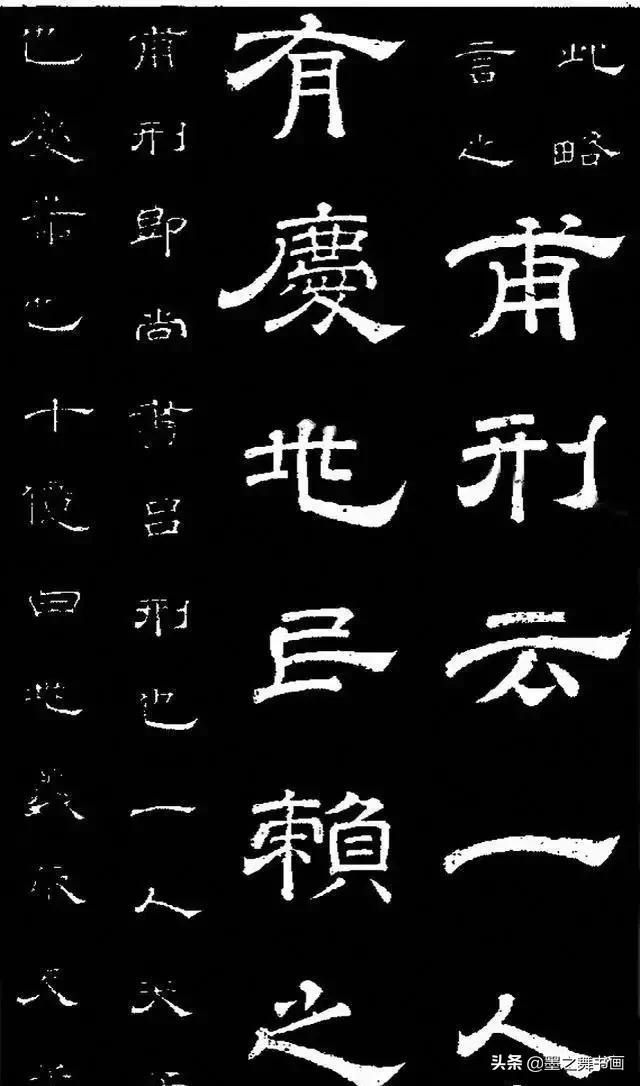 此略
言之
甫刑云一人
有慶兆民賴之
甫刑即尚書呂刑也一人天
也慶善也十億曰兆義取天
头条 @墨之舞书画